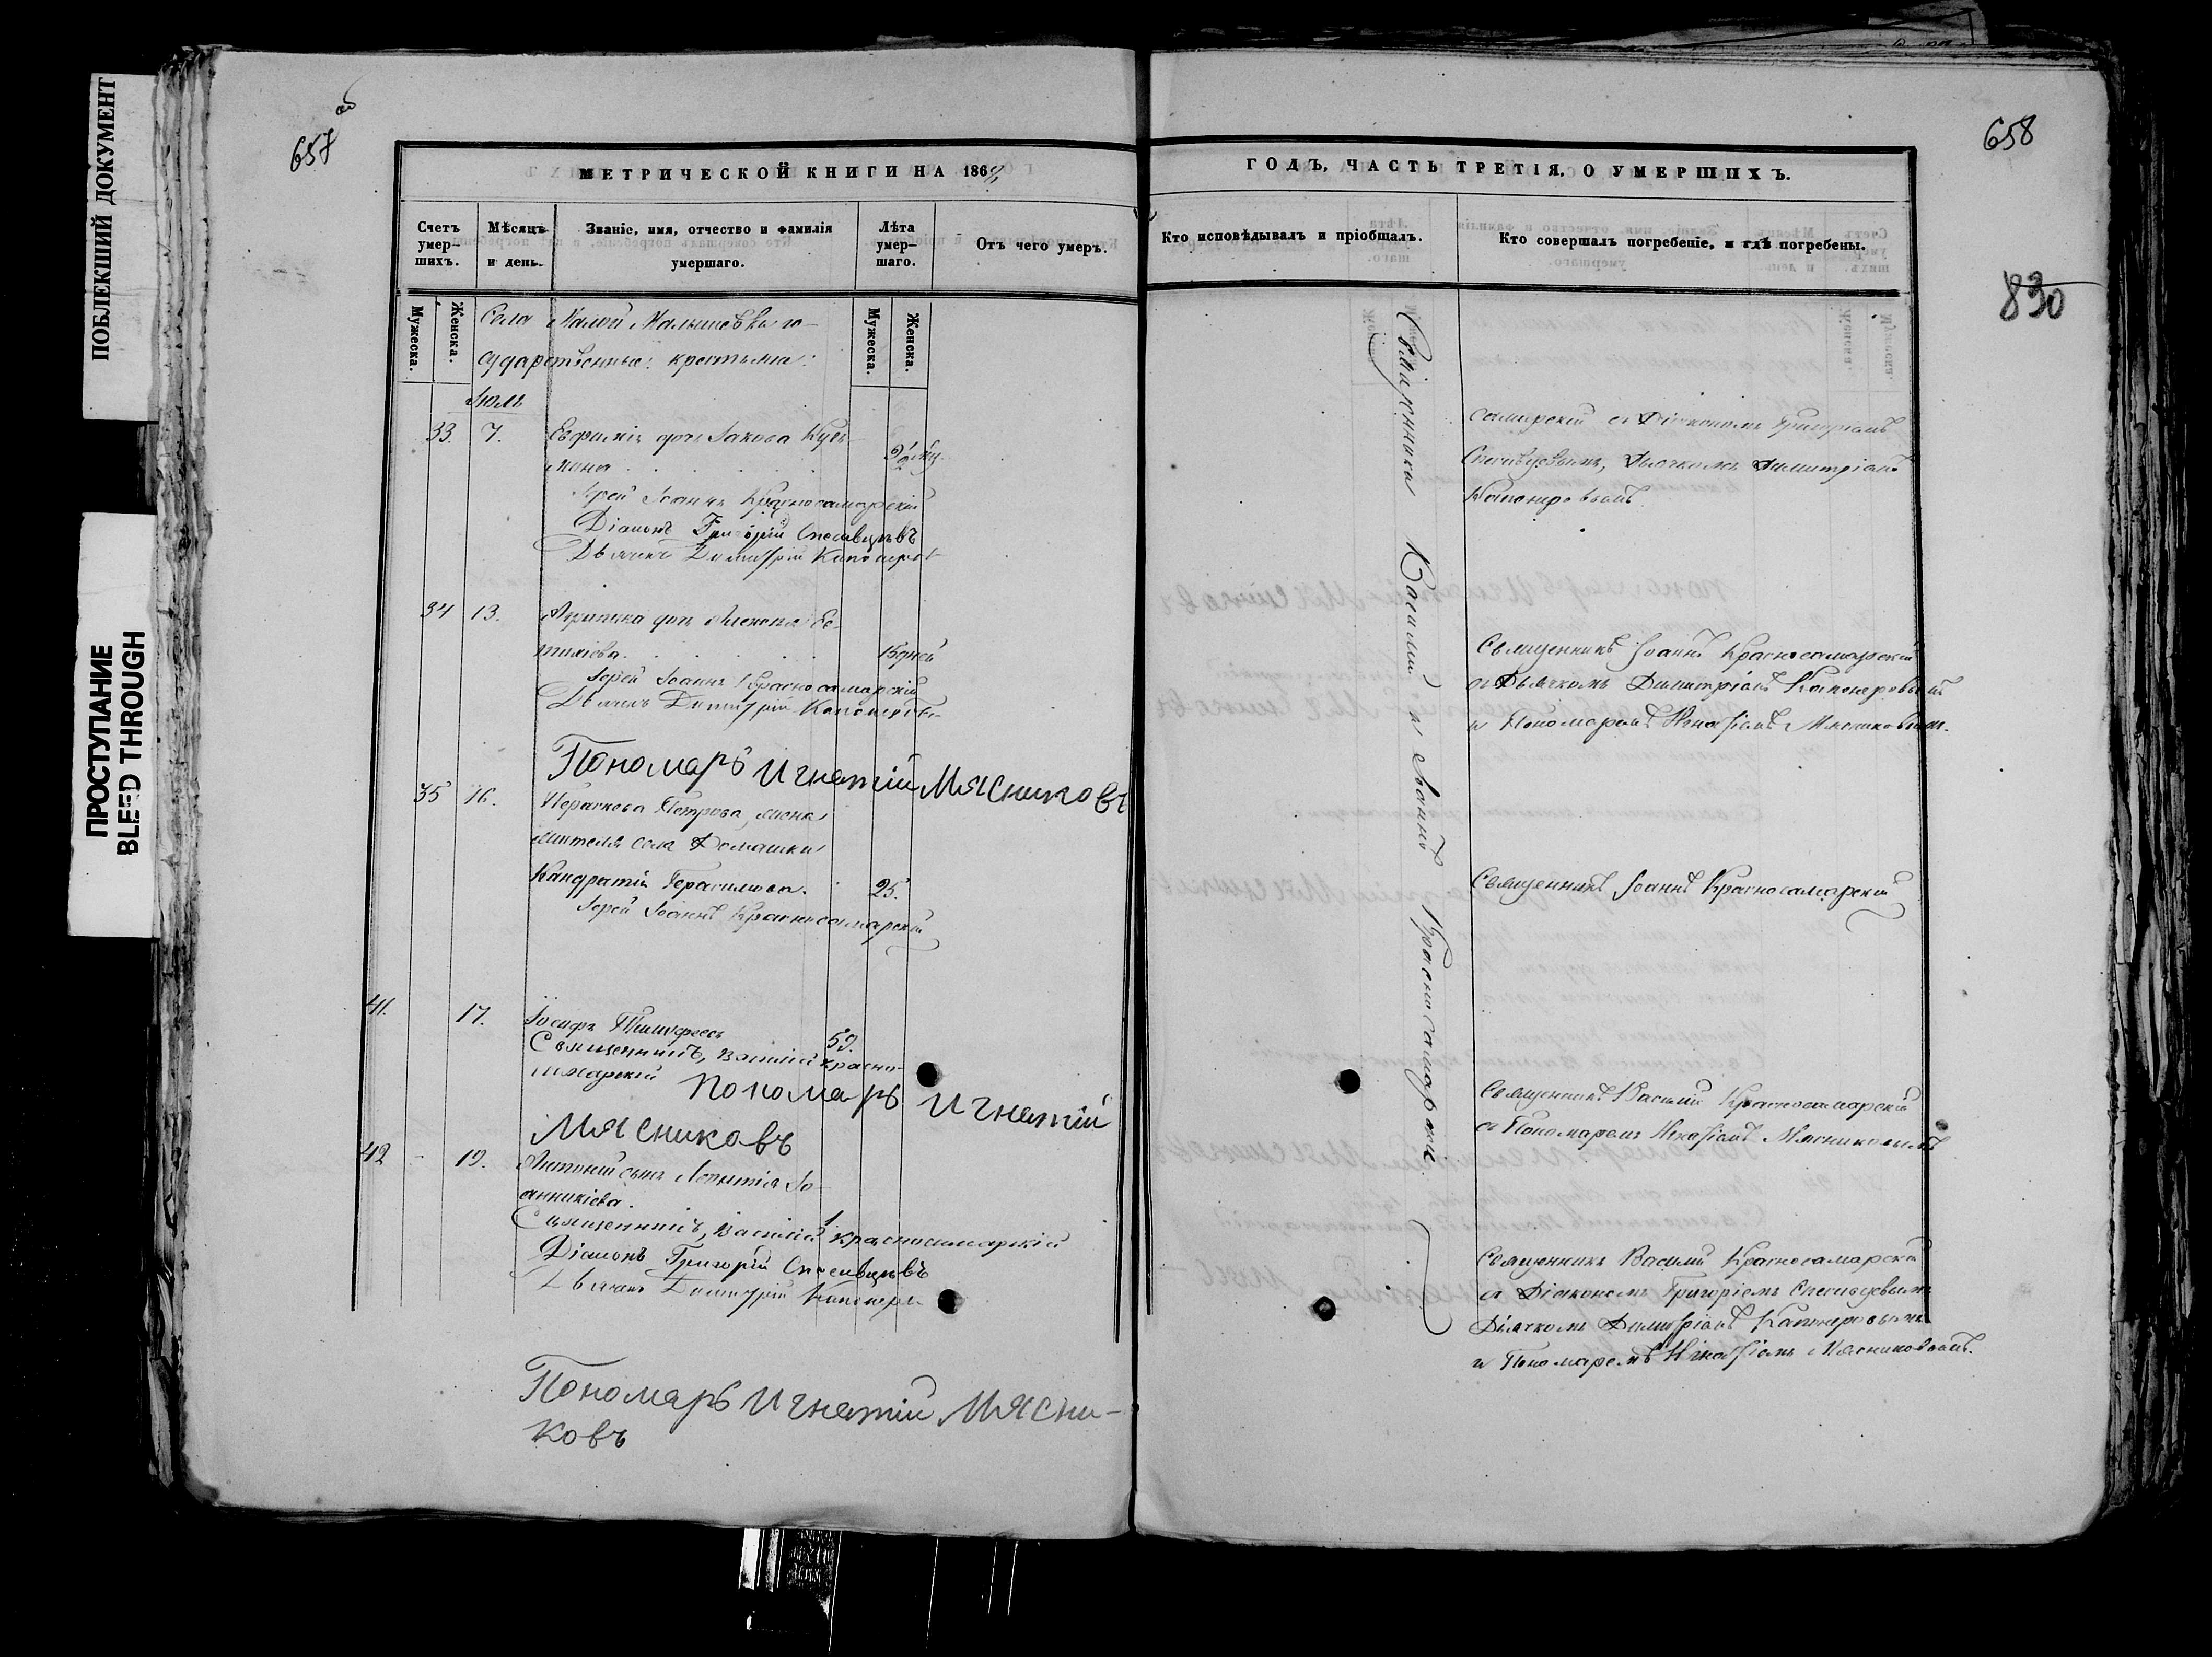 ПОБЛЕКШИЙ ДОКУМЕНТ
ПРОСТУПАНИЕ
BLEED THROUGH
657 об
МЕТРИЧЕСКОЙ КНИГИ НА 186
Счетъ умер-шихъ.
Мѣсяцъ и день.
Званіе, имя, отчество и фамилія умершаго.
Лѣта умер-шаго.
Отъ чего умеръ.
Мужеска.
Женска.
Мужеска.
Женска.
Села Малой Малышевки го-
сударственные: крестьяне:
Іюль
33. 7. Евфимія дочь Іакова Кузь-
мина
Іерей Іоаннъ Красносамарскій
Діаконъ Григорій Спесивцевъ
Дьячекъ Димитрій Капонеров
34 13. дочь
15 дней
Іерей Іоаннъ Красносамарскій
Дьячекъ Димитрій
Пономарь Игнатій Мясниковъ
35 16. Петрова, жена
жителя села Домашки
Кандратія Герасимова. 25.
Іерей Іоаннъ Красносамарскій
41. 17. Іосифъ 59.
Священникъ, Василій Красно-
самарскій Пономарь Игнатій
Мясниковъ
42 19. сынъ Іо-
анникіева. 1
Священникъ, Василій Красносамарскій
Діаконъ Григорій Спесивцевъ
Дьячекъ Димитрій
Пономарь Игнатій Мясни-
ковъ
658
830
ГОДЪ, ЧАСТЬ ТРЕТІЯ, О УМЕРШИХЪ.
Кто исповѣдывалъ и пріобщалъ.
Кто совершалъ погребеніе, и гдѣ погребены.
Священники Василій и Іоаннъ Красносамарскіе
самарскій съ Діакономъ Григоріемъ
Спесивцевымъ, Дьячкомъ Димитріемъ
Капонеровымъ
Священникъ Іоаннъ Красносамарскій
съ Дьячкомъ Димитріемъ Капонеровымъ
и Пономаремъ Игнатіемъ Мясниковымъ.
Священникъ Іоаннъ Красносамарскій
Священникъ Василій Красносамарскій
съ Пономаремъ Игнатіемъ Мясниковымъ
Священникъ Василій Красносамарскій
съ Діакономъ Григоріемъ Спесивцевымъ
Дьячкомъ Димитріемъ Капонеровымъ
и Пономаремъ Игнатіемъ Мясниковымъ.